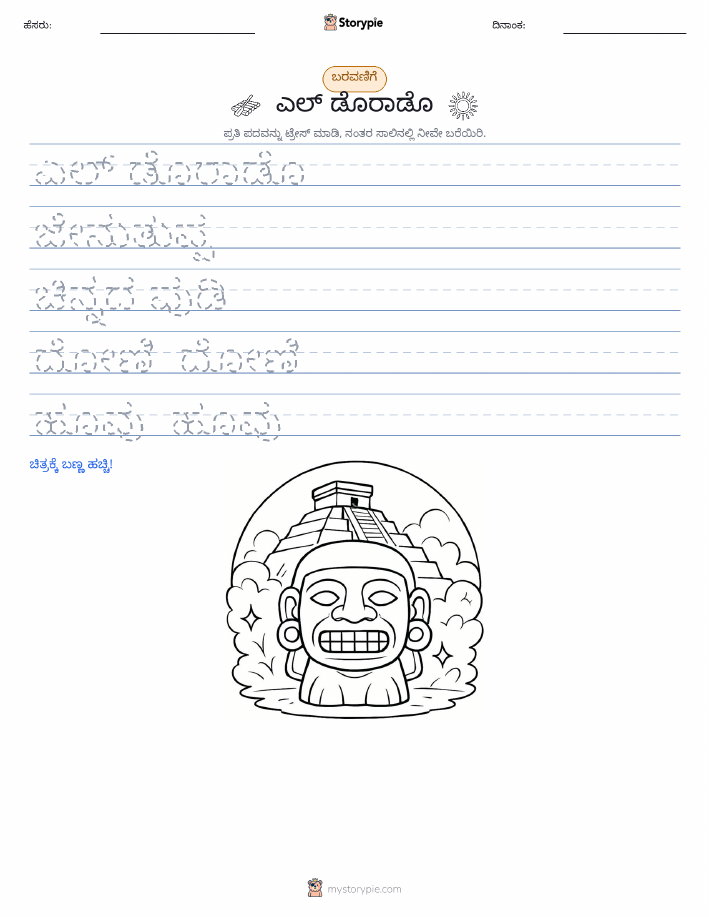 ಹೆಸರು:
Storypie
ದಿನಾಂಕ:
ಬರವಣಿಗೆ
ಎಲ್ ಡೊರಾಡೊ
ಪ್ರತಿ ಪದವನ್ನು ಟ್ರೇಸ್ ಮಾಡಿ, ನಂತರ ಸಾಲಿನಲ್ಲಿ ನೀವೇ ಬರೆಯಿರಿ.
ಎಲ್ ಡೊರಾಡೊ
ಜೇನುತುಪ್ಪ
ಚಿನ್ನದ ಪುಡಿ
ದೋಣಿ ದೋಣಿ
ಹೂವು ಹೂವು
ಚಿತ್ರಕ್ಕೆ ಬಣ್ಣ ಹಚ್ಚಿ!
mystorypie.com